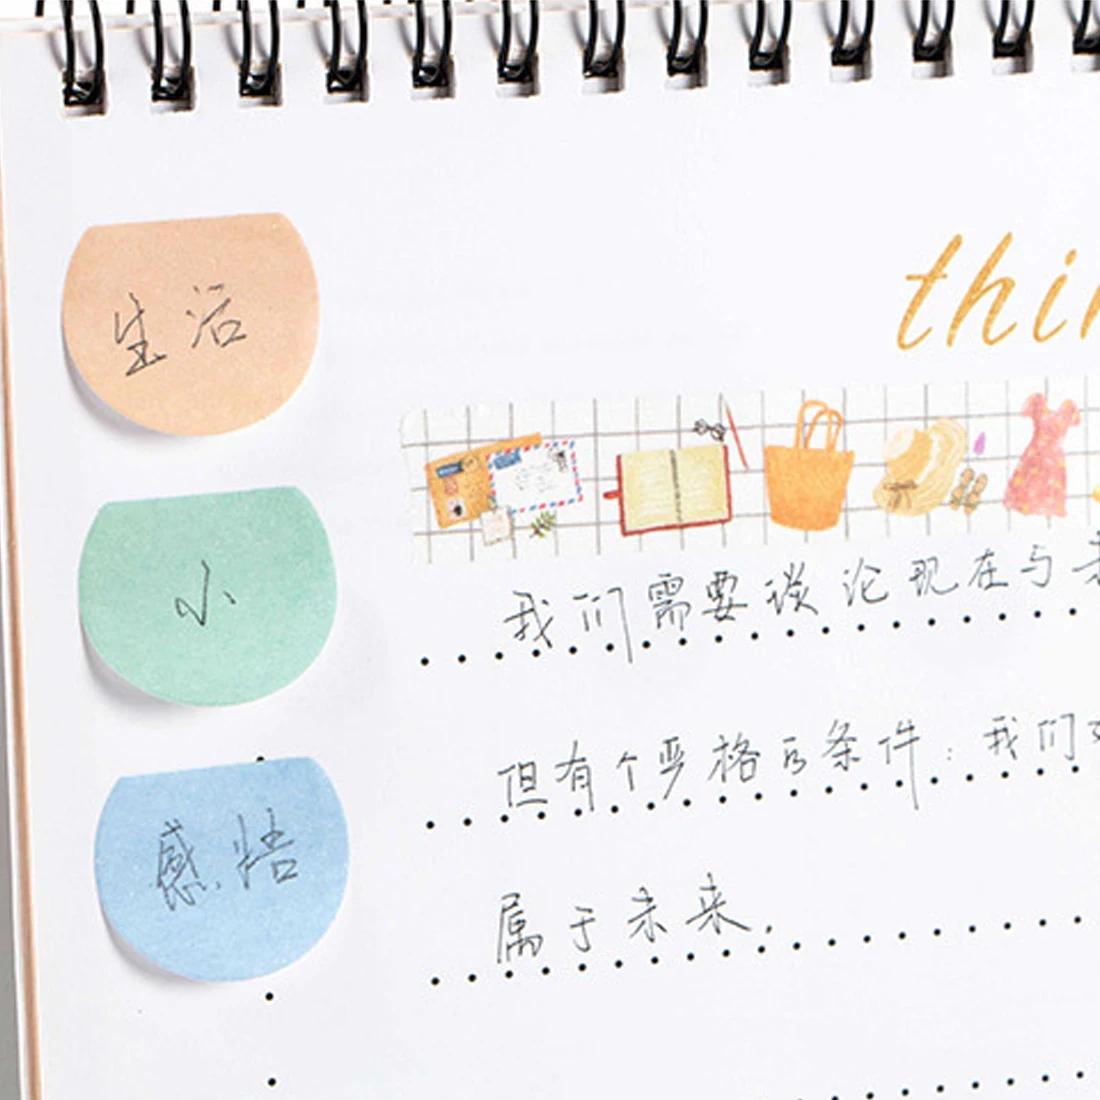 生活
小
感悟
thin
我们需要谈论现在与未
但有个严格的条件：我们
属于未来.